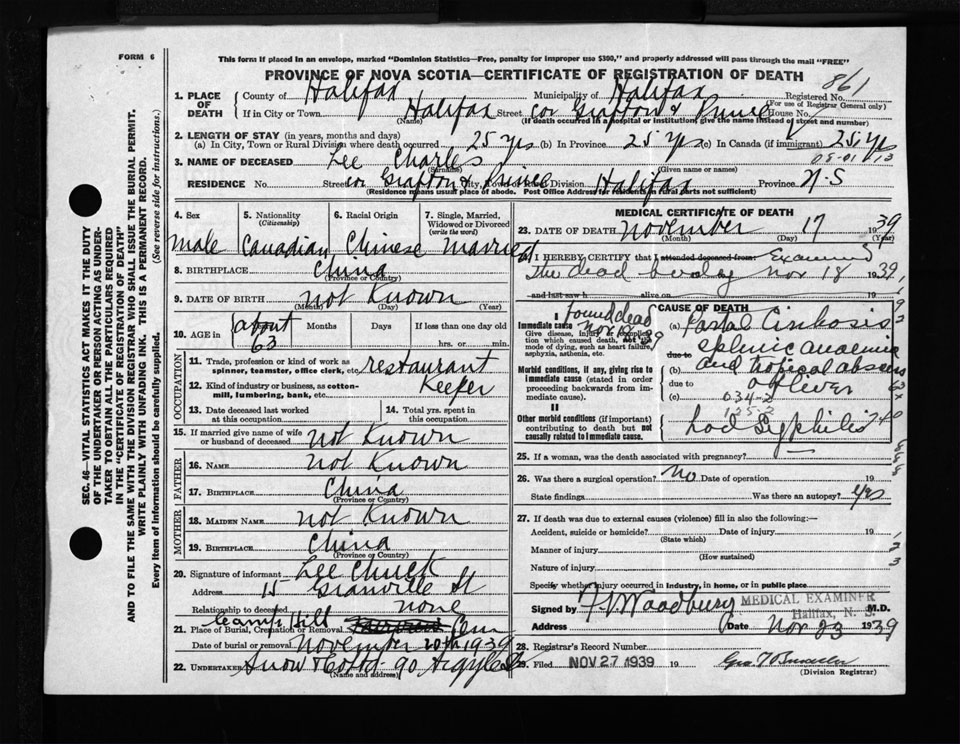 FORM 6
This form if placed in an envelope, marked "Dominion Statistics—Free, penalty for improper use $300," and properly addressed will pass through the mail "FREE"
PROVINCE OF NOVA SCOTIA—CERTIFICATE OF REGISTRATION OF DEATH
861
1. PLACE OF DEATH County of Halifax Municipality of Halifax Registered No. (For use of Registrar General only)
If in City or Town Halifax (Name) Street cor Grafton & Prince House No.
(If death occurred in a hospital or institution, give the name instead of street and number)
2. LENGTH OF STAY (in years, months and days)
(a) In City, Town or Rural Division where death occurred 25 yrs (b) In Province 25 yrs (c) In Canada (if immigrant) 25 yrs
3. NAME OF DECEASED Lee Charles
(Surname) (Given name or names)
RESIDENCE No. Street cor Grafton & Prince City, Town or Rural Division Halifax Province N-S
(Residence means usual place of abode. Post Office Address for residents in rural parts not sufficient)
4. Sex 5. Nationality (Citizenship) 6. Racial Origin 7. Single, Married, Widowed or Divorced (write the word)
male Canadian Chinese married
8. BIRTHPLACE China
(Province or Country)
9. DATE OF BIRTH not Known
(Month) (Day) (Year)
10. AGE in about 63 Months Days If less than one day old hrs. or min.
OCCUPATION
11. Trade, profession or kind of work as spinner, teamster, office clerk, etc. restaurant
12. Kind of industry or business, as cotton-mill, lumbering, bank, etc. Keeper
13. Date deceased last worked at this occupation
14. Total yrs. spent in this occupation
15. If married give name of wife or husband of deceased not Known
FATHER
16. NAME not Known
17. BIRTHPLACE China
(Province or Country)
MOTHER
18. MAIDEN NAME not Known
19. BIRTHPLACE China
(Province or Country)
20. Signature of informant Lee Chuck
Address 15 Granville St
Relationship to deceased none
Camp Hill
21. Place of Burial, Cremation or Removal Fairview Cem
Date of burial or removal November 20th 1939
22. UNDERTAKER Snow & Co Ltd - 90 Argyle St
(Name and address)
MEDICAL CERTIFICATE OF DEATH
23. DATE OF DEATH November 17 1939
(Month) (Day) (Year)
I HEREBY CERTIFY that I attended deceased from Examined
the dead body Nov 18 1939
and last saw h alive on 19
CAUSE OF DEATH
I
Immediate cause found dead Nov 18 39
Give disease, injury or complication which caused death, not the mode of dying, such as heart failure, asphyxia, asthenia, etc.
(a) Portal Cirrhosis
due to splenic anaemia
Morbid conditions, if any, giving rise to immediate cause (stated in order proceeding backwards from immediate cause).
(b) and tropical abscess
due to of liver
(c) 034-2
125-2
II
Other morbid conditions (if important) contributing to death but not causally related to immediate cause.
had Syphilis
25. If a woman, was the death associated with pregnancy?
26. Was there a surgical operation? no Date of operation 19
State findings Was there an autopsy? yes
27. If death was due to external causes (violence) fill in also the following:—
Accident, suicide or homicide? Date of injury 19
(State which)
Manner of injury
(How sustained)
Nature of injury
Specify whether injury occurred in industry, in home, or in public place
Signed by F V Woodbury M.D.
MEDICAL EXAMINER
Halifax, N. S.
Address Date Nov 23 1939
28. Registrar's Record Number
29. Filed NOV 27 1939 19
(Division Registrar)
SEC. 46—VITAL STATISTICS ACT MAKES IT THE DUTY
OF THE UNDERTAKER OR PERSON ACTING AS UNDERTAKER TO OBTAIN ALL THE PARTICULARS REQUIRED
IN THE "CERTIFICATE OF REGISTRATION OF DEATH"
AND TO FILE THE SAME WITH THE DIVISION REGISTRAR WHO SHALL ISSUE THE BURIAL PERMIT.
WRITE PLAINLY WITH UNFADING INK. THIS IS A PERMANENT RECORD.
Every item of information should be carefully supplied. (See reverse side for instructions.)